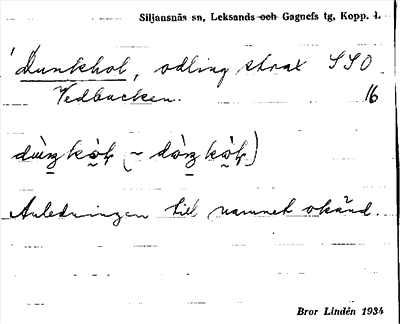 Siljansnäs sn, Leksands och Gagnefs tg, Kopp. l.
'Dunkhol, odling strax SSO
Vedbacken. 16
Anledningen till namnet okänd.
Bror Lindén 1934